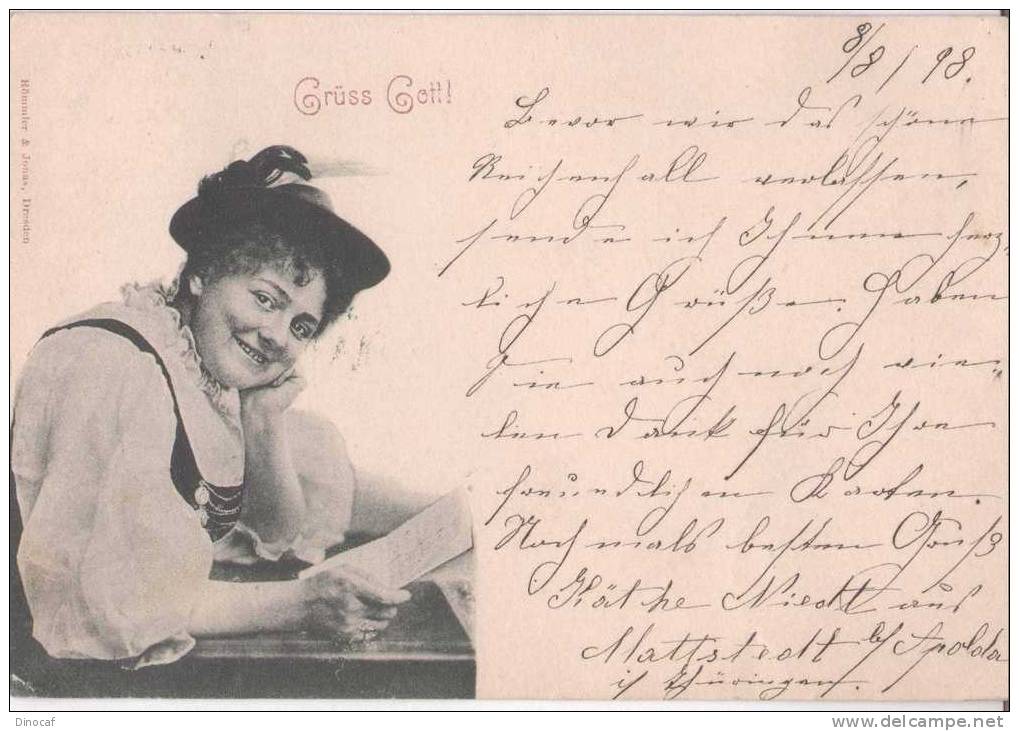 8/8/98.
Römmler & Jonas, Dresden
Grüss Gott!
Bevor wir das schöne
Reichenhall verlassen,
sende ich Ihnen herz-
liche Grüße. Haben
Sie auch noch vie-
len Dank für Ihre
freundlichen Karten.
Nochmals besten Gruß
Käthe Niedt aus
Mattstedt b/ Apolda
i/ Thüringen.
Dinocaf
http://www.delcampe.net